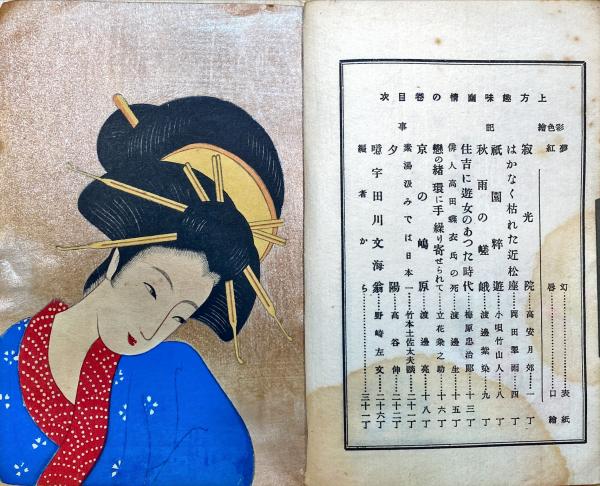 上方趣味幽情の巻目次
彩色絵 夢幻……表紙
紅唇……口繪
記事
寂光院……高安月郊……一丁
はかなく枯れた近松座……岡田翠雨……四丁
祇園粹遊……小唄竹山人……八丁
秋雨の嵯峨……渡邊紫染……九丁
住吉に遊女のあつた時代……梅原忠治郎……十三丁
俳人高田蝶衣氏の死……渡邊生……十五丁
戀の緒環に手繰り寄せられて……立花粂之助……十六丁
京の嶋原……渡邊亮……十八丁
素湯汲みでは日本一……竹本土佐太夫談……二十一丁
夕陽……高谷伸……二十二丁
噫宇田川文海翁……野崎左文……二十六丁
編者から……三十一丁